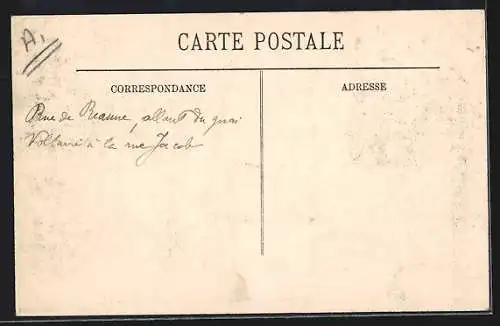 A1
CARTE POSTALE
CORRESPONDANCE
ADRESSE
Rue de Beaune, allant du quai
Voltaire à la rue Jacob